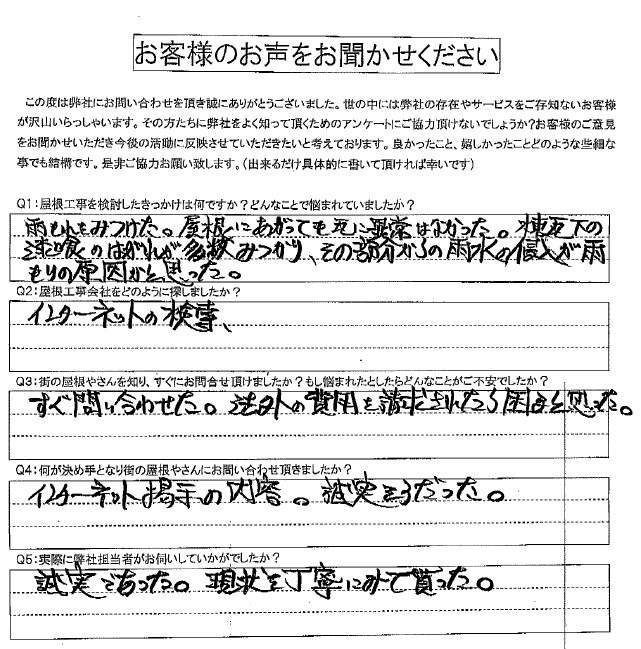 お客様のお声をお聞かせください
この度は弊社にお問い合わせを頂き誠にありがとうございました。世の中には弊社の存在やサービスをご存知ないお客様
が沢山いらっしゃいます。その方たちに弊社をよく知って頂くためのアンケートにご協力頂けないでしょうか?お客様のご意見
をお聞かせいただき今後の活動に反映させていただきたいと考えております。良かったこと、嬉しかったことどのような些細な
事でも結構です。是非ご協力お願い致します。(出来るだけ具体的に書いて頂ければ幸いです)
Q1:屋根工事を検討したきっかけは何ですか?どんなことで悩まれていましたか?
雨もれをみつけた。屋根にあがっても瓦に異常はなかった。棟瓦下の
漆喰のはがれが多数みつかり、その部分からの雨水の侵入が雨
もりの原因かと思った。
Q2:屋根工事会社をどのように探しましたか?
インターネットの検索、
Q3:街の屋根やさんを知り、すぐにお問合せ頂けましたか?もし悩まれたとしたらどんなことがご不安でしたか?
すぐ問い合わせた。法外の費用を請求されたら困ると思った。
Q4:何が決め手となり街の屋根やさんにお問い合わせ頂きましたか?
インターネット掲示の内容。誠実そうだった。
Q5:実際に弊社担当者がお伺いしていかがでしたか?
誠実であった。現状を丁寧にみて貰った。